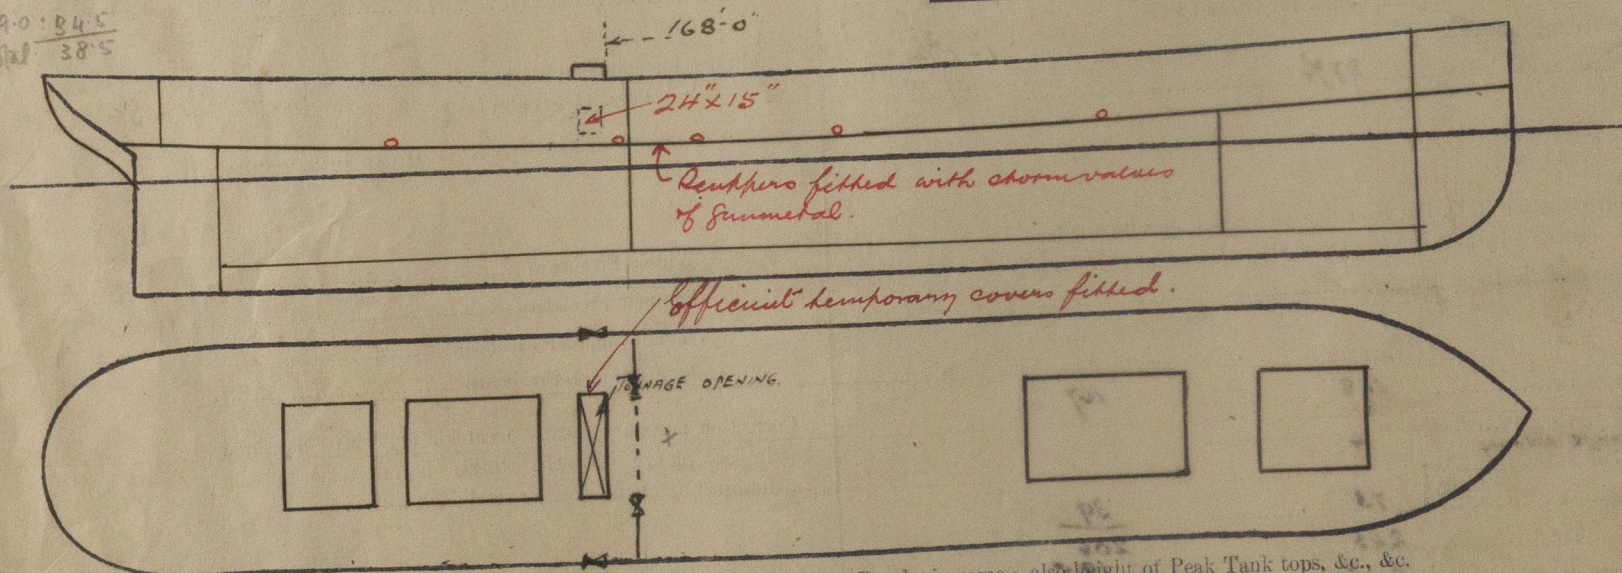 9.0 : 34.5
38.5
168'-0"
24" x 15"
Scuppers fitted with storm valves
of Gunmetal.
Efficient temporary covers fitted.
TONNAGE OPENING.
height of Peak Tank tops, &c., &c.